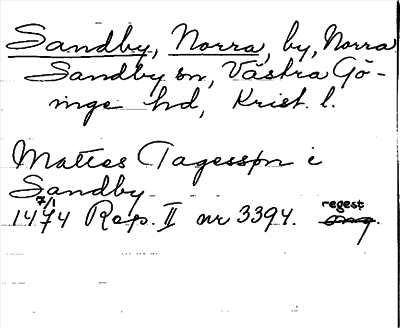 Sandby, Norra, by, Norra
Sandby sn, Västra Gö-
inge hd, Krist. l.
Mattes Tagesson i
Sandby
7/1
1474 Rep. II nr 3394. regest